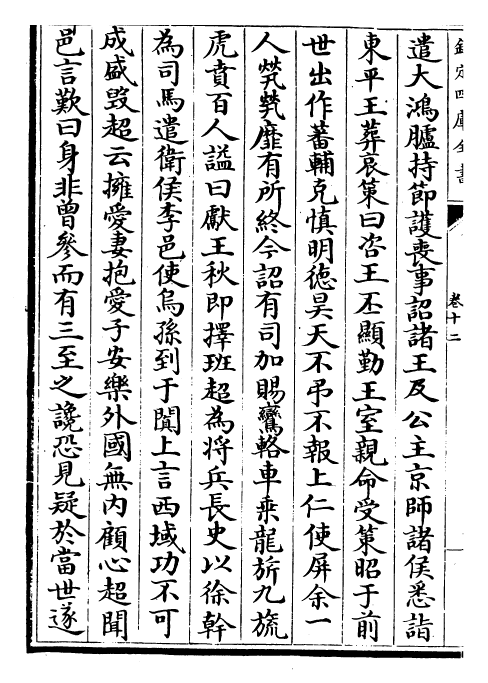 欽定四庫全書
卷十二
遣大鴻臚持節護喪事詔諸王及公主京師諸侯悉詣
東平王葬哀策曰咨王丕顯勤王室親命受策昭于前
世出作蕃輔克慎明德昊天不弔不報上仁使屏余一
人煢煢靡有所終今詔有司加賜鸞輅車乘龍旂九旒
虎賁百人謚曰獻王秋即擇班超為将兵長史以徐幹
為司馬遣衛侯李邑使烏孫到于闐上言西域功不可
成盛毀超云擁愛妻抱愛子安樂外國無内顧心超聞
邑言歎曰身非曾參而有三至之讒恐見疑於當世遂